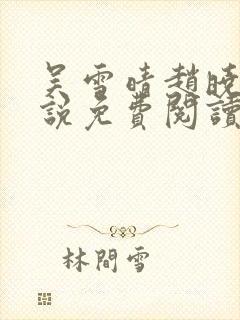 吴雪晴趙曉
說免費閱讀
林間雪